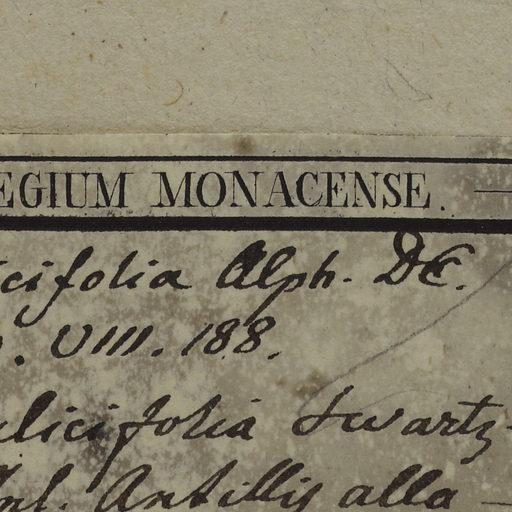 EGIUM MONACENSE.
cifolia Alph. DC.
. VIII. 188.
licifolia Swartz
Antillis alla